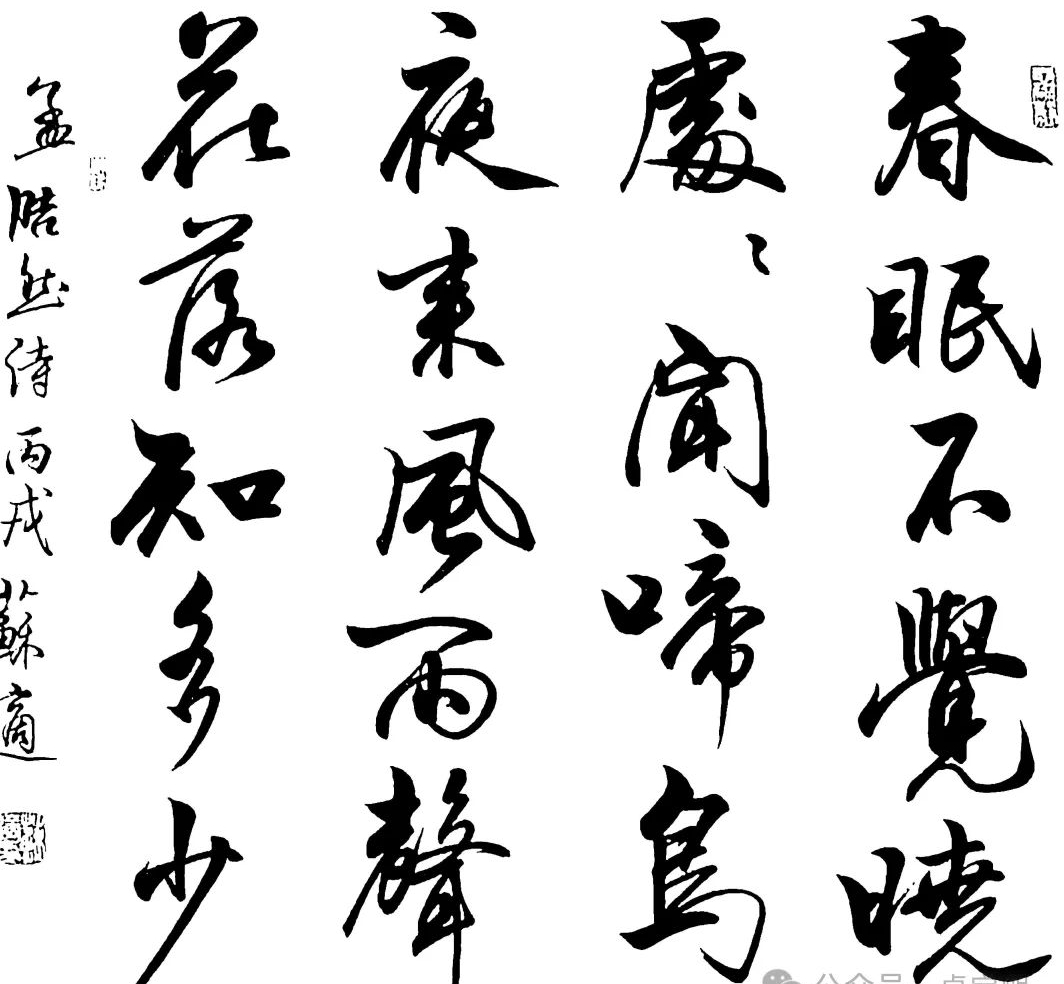 春眠不覺曉
處〻聞啼鳥
夜来風雨聲
花落知多少
孟浩然詩 丙戌 蘇適
公众号